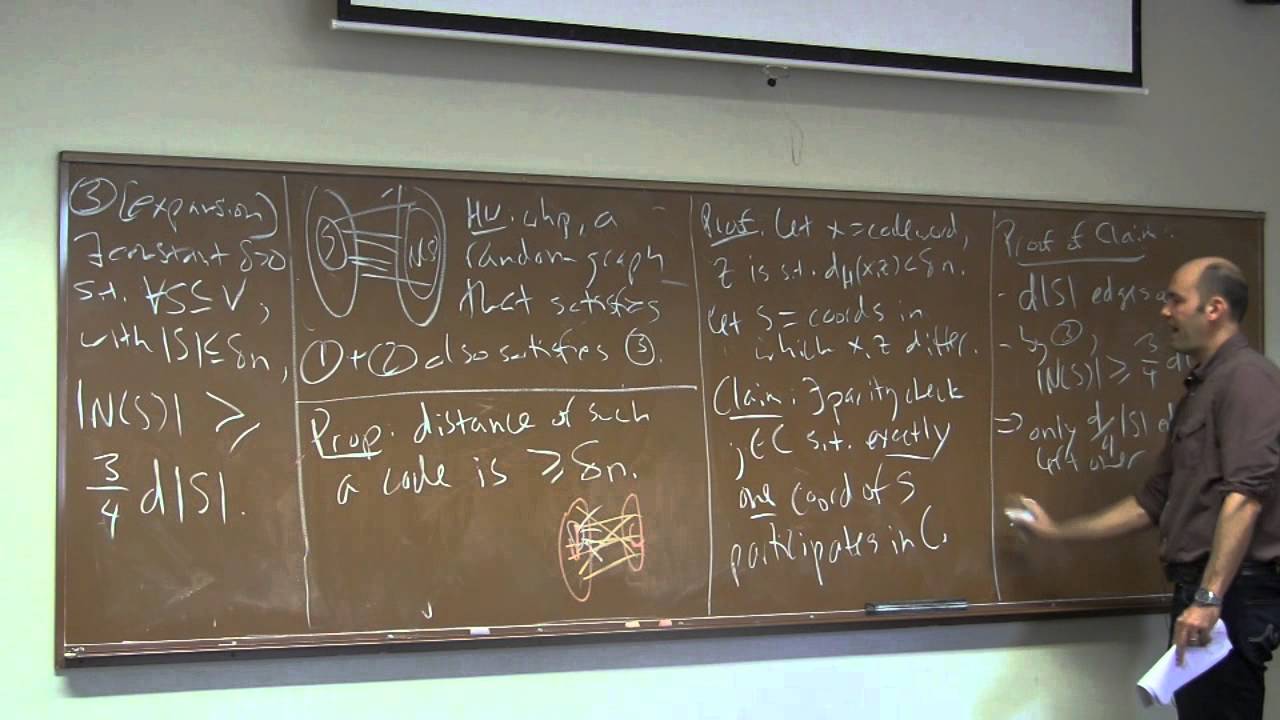 ③ (expansion)
∃ constant δ>0
s.t. ∀S⊆V,
with |S|≤δn,
|N(S)| ≥
3/4 d|S|.
S
N(S)
HW: whp, a
random graph
that satisfies
①+② also satisfies ③.
Prop: distance of such
a code is ≥δn.
Proof: Let x=codeword,
z is s.t. d_H(x,z)<δn.
Let S = coords in
which x,z differ.
Claim: ∃ parity check
j∈C s.t. exactly
one coord of S
participates in C.
Proof of Claim:
- d|S| edges
- by ③,
|N(S)| ≥ 3/4 d
⇒ only d/4|S|
left over